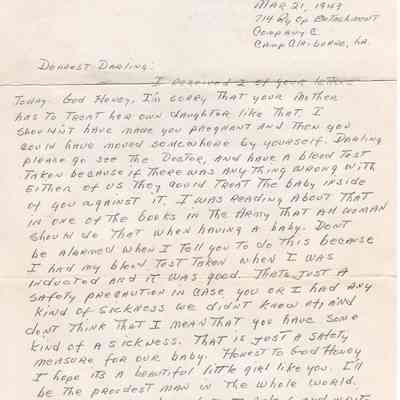 MAR 21, 1943
714 Ry Op Detachment
Company C
Camp Claiborne, La.
Dearest Darling:
I received 2 of your letters
today. God Honey, I'm sorry that your mother
has to treat her own daughter like that. I
shouldn't have made you pregnant and then you
could have moved somewhere by yourself. Darling
please go see the Doctor, and have a blood test
taken because if there was any thing wrong with
either of us they could treat the baby inside
of you against it. I was reading about that
in one of the books in the Army that all woman
should do that when having a baby. Don't
be alarmed when I tell you to do this because
I had my blood test taken when I was
inducted and it was good. Thats just a
safety precaution in case you or I had any
kind of sickness we didn't know of, and
don't think that I mean that you have some
kind of a sickness. That is just a safety
measure for our baby. Honest to God Honey
I hope its a beautiful little girl like you. I'll
be the proudest man in the whole world.